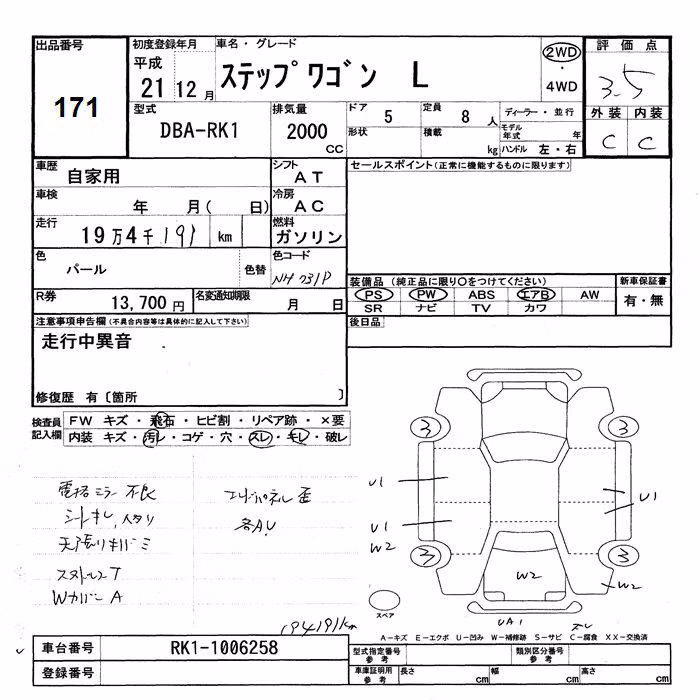 出品番号
171
初度登録年月
平成
21 12月
車名・グレード
ステップワゴン L
2WD
・
4WD
評価点
3.5
外装 内装
C C
型式
DBA-RK1
排気量
2000
CC
ドア 5
形状
定員 8 人
積載 kg
ディーラー・並行
モデル年式 年
ハンドル 左・右
車歴
自家用
シフト
AT
車検
年 月( 日)
冷房
AC
走行
19万4千191 km
燃料
ガソリン
色
パール
色替
色コード
NH731P
R券
13,700円
名変通知期限
月 日
セールスポイント(正常に機能するものに限ります)
装備品 (純正品に限り○をつけてください)
PS PW ABS エアB AW
SR ナビ TV カワ
新車保証書
有・無
後日品
注意事項申告欄(不具合内容等は具体的に記入して下さい)
走行中異音
修復歴 有〔箇所 〕
検査員
記入欄
FW キズ・飛石・ヒビ割・リペア跡・×要
内装 キズ・汚レ・コゲ・穴・スレ・キレ・破レ
電格ミラー不良
シートキレ,
A
各A,U
194191km
3
3
3
3
U1
U1
W2
U1
W2
W2
UA1
スペア
A-キズ E-エクボ U-凹み W-補修跡 S-サビ C-腐食 XX-交換済
車台番号
RK1-1006258
登録番号
型式指定番号
参考
類別区分番号
参考
車庫証明用
参考
長さ cm
幅 cm
高さ cm